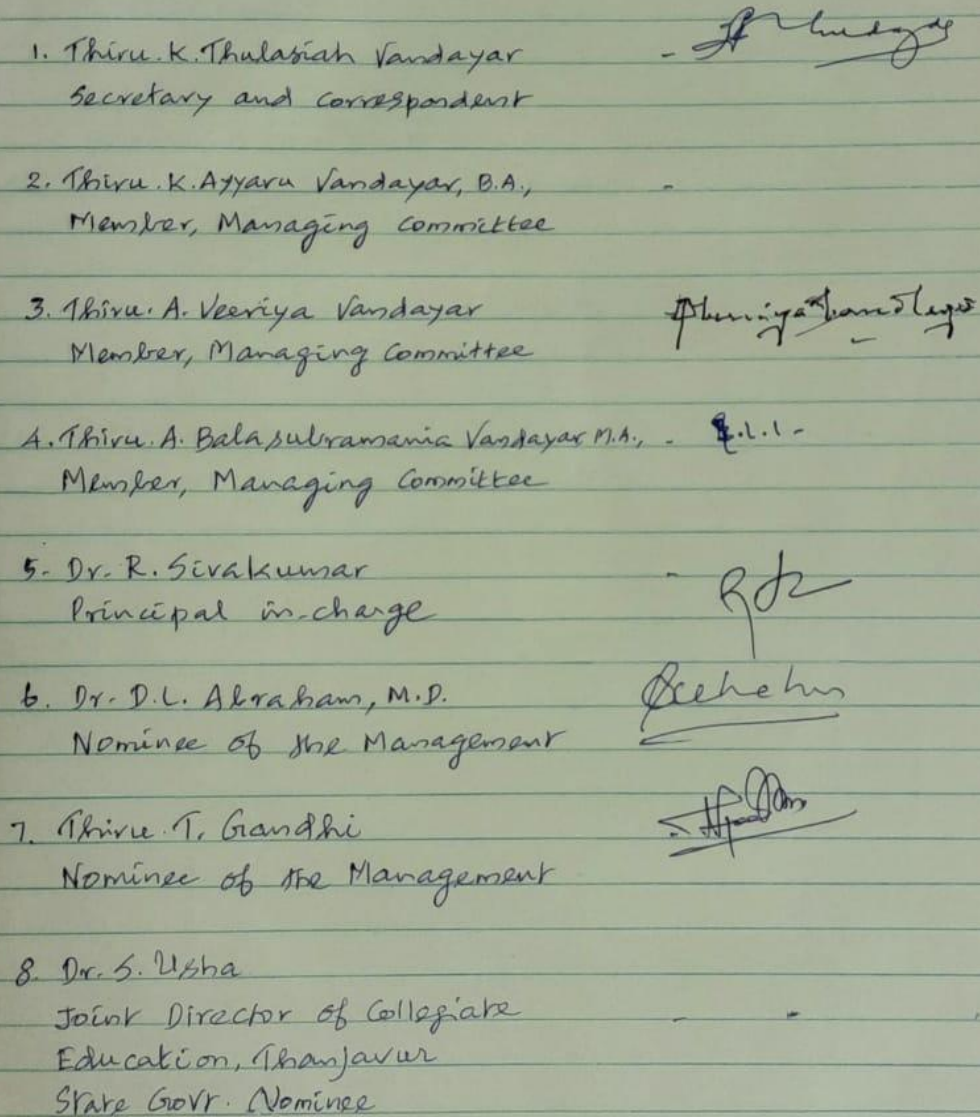 1. Thiru. K. Thulasiah Vandayar -
Secretary and Correspondent
2. Thiru. K. Ayyaru Vandayar, B.A., -
Member, Managing Committee
3. Thiru. A. Veeriya Vandayar
Member, Managing Committee
4. Thiru. A. Balasubramania Vandayar M.A., -
Member, Managing Committee
5. Dr. R. Sivakumar -
Principal in-charge
6. Dr. D.L. Abraham, M.D.
Nominee of the Management
7. Thiru. T. Gandhi
Nominee of the Management
8. Dr. S. Usha
Joint Director of Collegiate - -
Education, Thanjavur
State Govt. Nominee